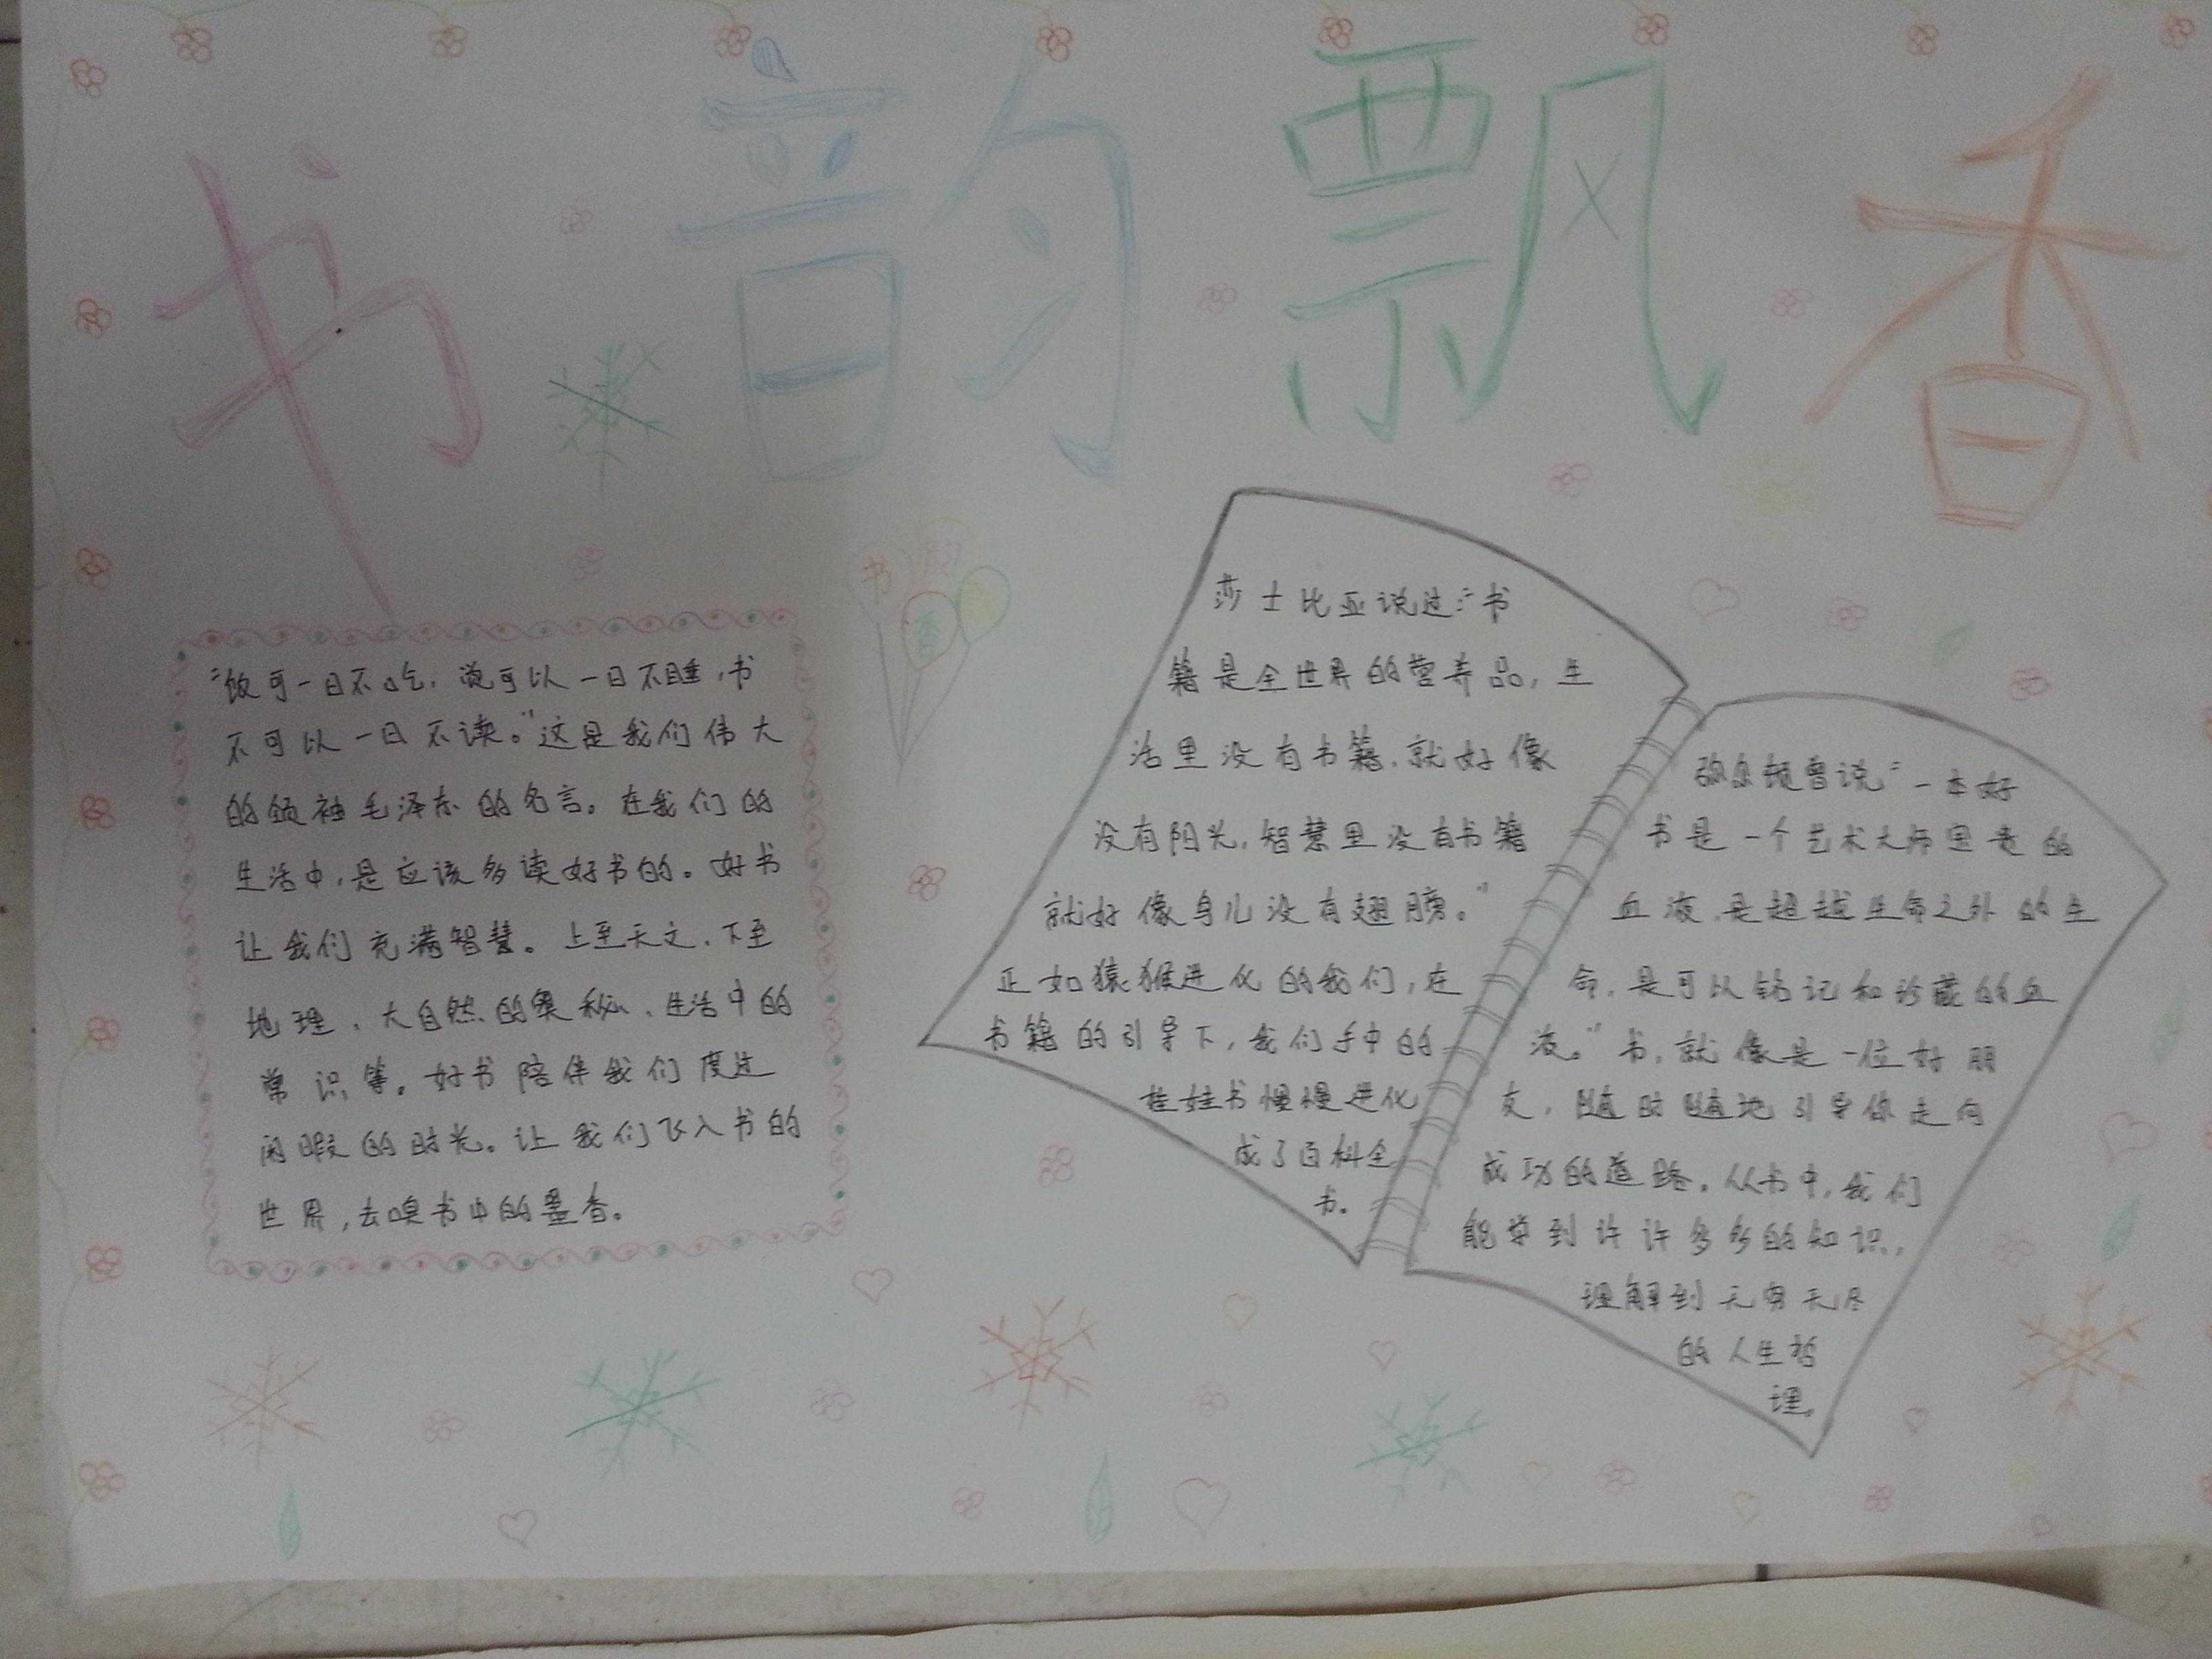 书韵飘香
书韵
香
"饭可一日不吃,觉可以一日不睡,书
不可以一日不读。"这是我们伟大
的领袖毛泽东的名言。在我们的
生活中,是应该多读好书的。好书
让我们充满智慧。上至天文,下至
地理、大自然的奥秘、生活中的
常识等。好书陪伴我们度过
闲暇的时光。让我们飞入书的
世界,去嗅书中的墨香。
莎士比亚说过:"书
籍是全世界的营养品,生
活里没有书籍,就好像
没有阳光,智慧里没有书籍
就好像鸟儿没有翅膀。"
正如猿猴进化的我们,在
书籍的引导下,我们手中的
娃娃书慢慢进化
成了百科全
书。
弥尔顿曾说"一本好
书是一个艺术大师宝贵的
血液,是超越生命之外的生
命,是可以铭记和珍藏的血
液。"书,就像是一位好朋
友,随时随地引导你走向
成功的道路。从书中,我们
能学到许许多多的知识,
理解到无穷无尽
的人生哲
理。